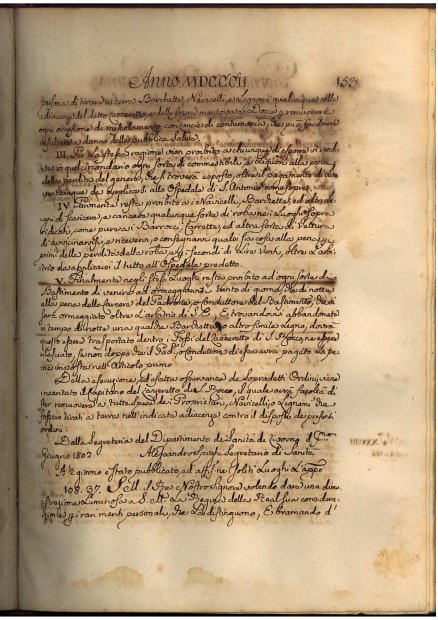 Anno MDCCCII
153
persona di tirare a terra Barchette, Navicelli, e Legnami qualunque nelle
adiacenze del detto Lazzeretto, e dello sopra mentovato Docca, per rimuovere
ogni occasione di mescolamento con generi di contumacia, che può facilmente
risultare a danno della pubblica Salute
III. Per la stessa ragione vien proibito a chiunque di esporre in vendi
ta in quel circondario ogni sorta di commestibili, e alla pena
della perdita del genere, che si troverà esposto, oltre il pagamento di
venticinque da applicarsi allo Spedale di S. Antonio come sopra
IV. Parimente resta proibito a i Navicelli, Barchette, ed altri
gni di scaricare, e caricare qualunque sorte di roba nei Luoghi sopra
indicati, come pure a i Barrocci, Carrette, ed altra sorte di Vettura
di avvicinarvisi, e ricevervi, o consegnarvi qualsisia cosa alla pena
primi della perdita della roba, ai secondi di Lire Venti, oltre l'arbi
trio da applicarsi il tutto all'Ospedale predetto.
V. Finalmente negli stessi Luoghi resta proibito ad ogni sorte di
Bastimento di venirvi ad ormeggiarsi tanto di giorno, che di notte
alla pena delle del Padrone, o conduttore del Bastimento, che
sarà ormeggiato oltre l'arbitrio di S. E. E trovandosi abbandonata
in tempo di notte una qualche Barchetta, o altro simile Legno, dovrà
questo essere trasportato dentro i Fossi del Lazzeretto di S. Rocco, ne essere
rilasciato, se non doppo che il Pad.e, o Conduttore di essa avrà pagato la pe
na imposta nell'Articolo primo
Della esecuzione, ed esatta osservanza de Sopradetti Ordini, viene
incaricato il Capitano del Lazzeretto di S. Rocco, il quale avrà facoltà di
far rimuovere a tutte spese dei Proprietarj, Navicelli, e Legnami, che
fossero tirati a terra nell'indicate adiacenze contro il disposto de presenti
ordini.
Dalla Segreteria del Dipartimento di Sanità di Livorno il P.mo
Giugno 1802.
Alessandro Segretario di Sanità
A dì giorno è stato pubblicato, ed affisso ne Soliti Luoghi
108. 37. S. M. il Re Nostro Signore volendo dare una dimo
strazione Luminosa a S. M. La Regina della Real Sua considera
zione, per i rari meriti personali, che La distinguono, E bramando d'